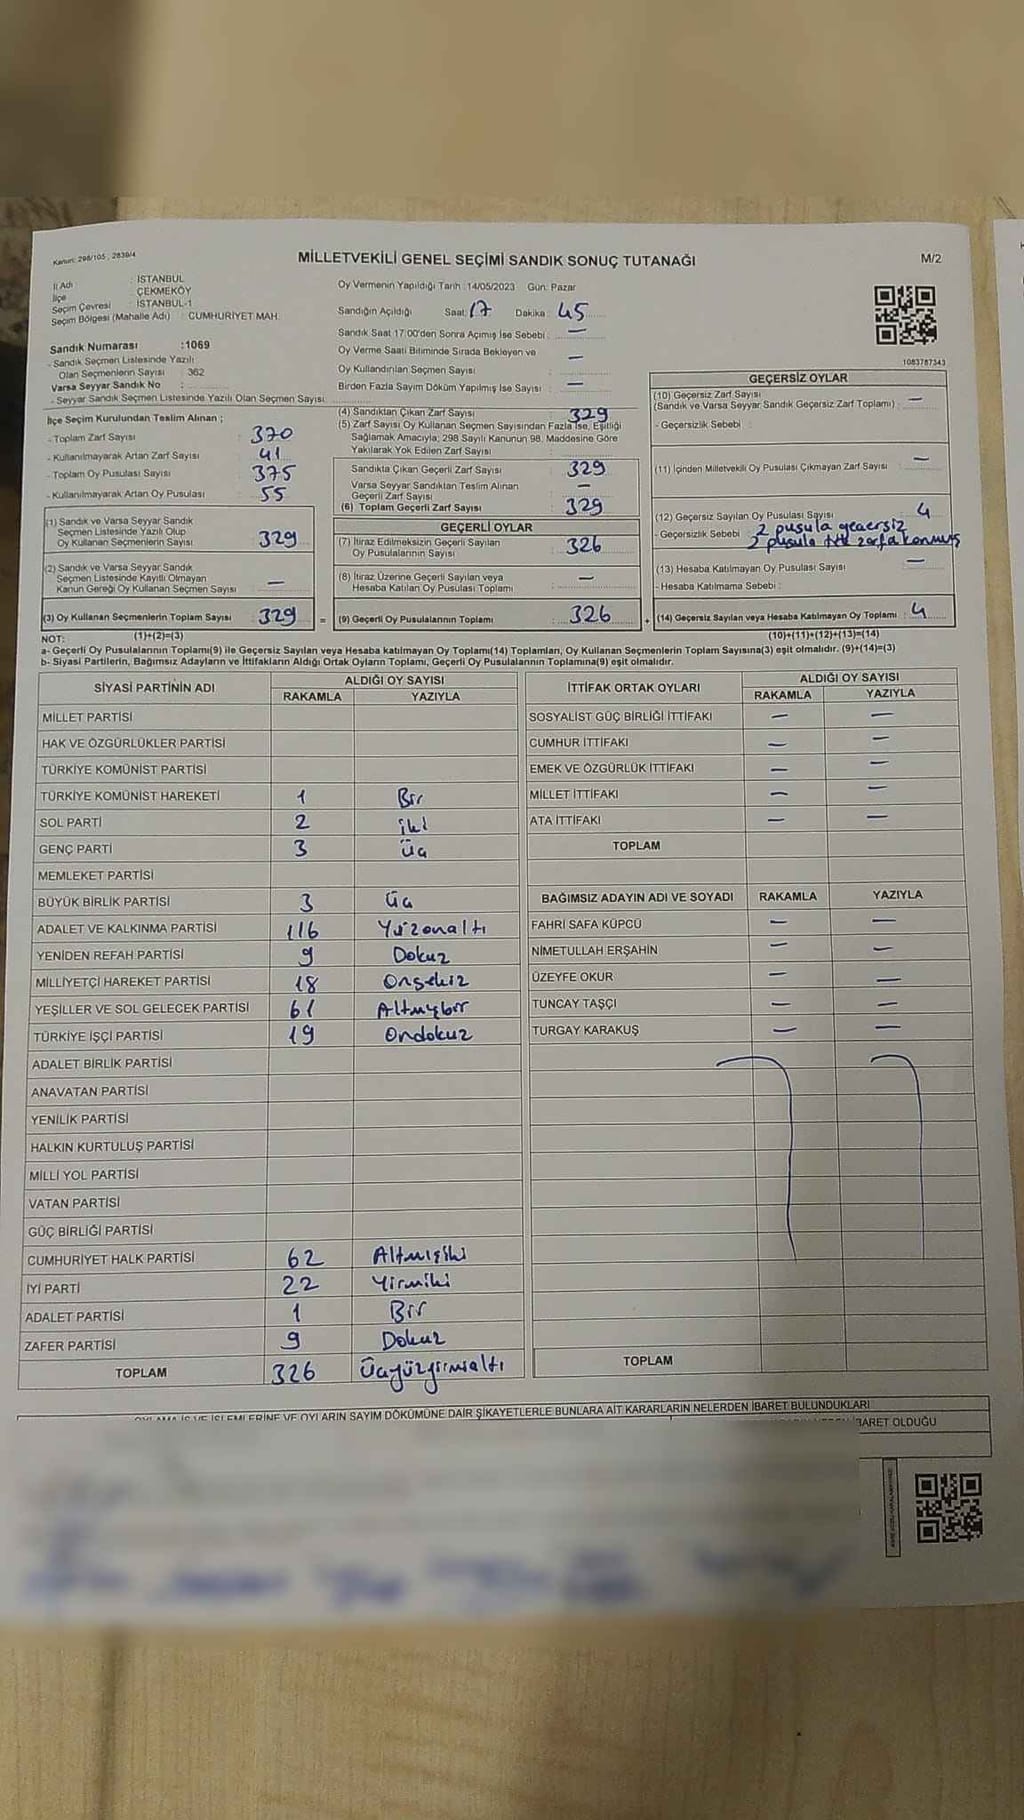 Kanun: 298/105 , 2839/4
MİLLETVEKİLİ GENEL SEÇİMİ SANDIK SONUÇ TUTANAĞI
M/2
İl Adı : İSTANBUL
İlçe : ÇEKMEKÖY
Seçim Çevresi : İSTANBUL-1
Seçim Bölgesi (Mahalle Adı) : CUMHURİYET MAH.
Sandık Numarası :1069
- Sandık Seçmen Listesinde Yazılı
Olan Seçmenlerin Sayısı : 362
Varsa Seyyar Sandık No :
- Seyyar Sandık Seçmen Listesinde Yazılı Olan Seçmen Sayısı:
Oy Vermenin Yapıldığı Tarih :14/05/2023 Gün: Pazar
Sandığın Açıldığı Saat: 17 Dakika : 45
Sandık Saat 17:00'den Sonra Açımış İse Sebebi : —
Oy Verme Saati Bitiminde Sırada Bekleyen ve
Oy Kullandırılan Seçmen Sayısı : —
Birden Fazla Sayım Döküm Yapılmış İse Sayısı : —
1083787343
İlçe Seçim Kurulundan Teslim Alınan ;
- Toplam Zarf Sayısı : 370
- Kullanılmayarak Artan Zarf Sayısı : 41
- Toplam Oy Pusulası Sayısı : 375
- Kullanılmayarak Artan Oy Pusulası : 55
(1) Sandık ve Varsa Seyyar Sandık
Seçmen Listesinde Yazılı Olup
Oy Kullanan Seçmenlerin Sayısı : 329
(2) Sandık ve Varsa Seyyar Sandık
Seçmen Listesinde Kayıtlı Olmayan
Kanun Gereği Oy Kullanan Seçmen Sayısı : —
(3) Oy Kullanan Seçmenlerin Toplam Sayısı : 329 =
(4) Sandıktan Çıkan Zarf Sayısı : 329
(5) Zarf Sayısı Oy Kullanan Seçmen Sayısından Fazla İse, Eşitliği
Sağlamak Amacıyla; 298 Sayılı Kanunun 98. Maddesine Göre
Yakılarak Yok Edilen Zarf Sayısı :
Sandıkta Çıkan Geçerli Zarf Sayısı : 329
Varsa Seyyar Sandıktan Teslim Alınan
Geçerli Zarf Sayısı : —
(6) Toplam Geçerli Zarf Sayısı : 329
GEÇERLİ OYLAR
(7) İtiraz Edilmeksizin Geçerli Sayılan
Oy Pusulalarının Sayısı : 326
(8) İtiraz Üzerine Geçerli Sayılan veya
Hesaba Katılan Oy Pusulası Toplamı : —
(9) Geçerli Oy Pusulalarının Toplamı : 326 +
GEÇERSİZ OYLAR
(10) Geçersiz Zarf Sayısı
(Sandık ve Varsa Seyyar Sandık Geçersiz Zarf Toplamı) : —
- Geçersizlik Sebebi :
(11) İçinden Milletvekili Oy Pusulası Çıkmayan Zarf Sayısı : —
(12) Geçersiz Sayılan Oy Pusulası Sayısı : 4
- Geçersizlik Sebebi : 2 pusula geçersiz
2 pusula tek zarfa konmuş
(13) Hesaba Katılmayan Oy Pusulası Sayısı : —
- Hesaba Katılmama Sebebi :
(14) Geçersiz Sayılan veya Hesaba Katılmayan Oy Toplamı : 4
NOT: (1)+(2)=(3) (10)+(11)+(12)+(13)=(14)
a- Geçerli Oy Pusulalarının Toplamı(9) ile Geçersiz Sayılan veya Hesaba katılmayan Oy Toplamı(14) Toplamları, Oy Kullanan Seçmenlerin Toplam Sayısına(3) eşit olmalıdır. (9)+(14)=(3)
b- Siyasi Partilerin, Bağımsız Adayların ve İttifakların Aldığı Ortak Oyların Toplamı, Geçerli Oy Pusulalarının Toplamına(9) eşit olmalıdır.
SİYASİ PARTİNİN ADI ALDIĞI OY SAYISI
RAKAMLA YAZIYLA
MİLLET PARTİSİ
HAK VE ÖZGÜRLÜKLER PARTİSİ
TÜRKİYE KOMÜNİST PARTİSİ
TÜRKİYE KOMÜNİST HAREKETİ 1 Bir
SOL PARTİ 2 iki
GENÇ PARTİ 3 Üç
MEMLEKET PARTİSİ
BÜYÜK BİRLİK PARTİSİ 3 Üç
ADALET VE KALKINMA PARTİSİ 116 Yüzonaltı
YENİDEN REFAH PARTİSİ 9 Dokuz
MİLLİYETÇİ HAREKET PARTİSİ 18 Onsekiz
YEŞİLLER VE SOL GELECEK PARTİSİ 61 Altmışbir
TÜRKİYE İŞÇİ PARTİSİ 19 Ondokuz
ADALET BİRLİK PARTİSİ
ANAVATAN PARTİSİ
YENİLİK PARTİSİ
HALKIN KURTULUŞ PARTİSİ
MİLLİ YOL PARTİSİ
VATAN PARTİSİ
GÜÇ BİRLİĞİ PARTİSİ
CUMHURİYET HALK PARTİSİ 62 Altmışiki
İYİ PARTİ 22 Yirmiiki
ADALET PARTİSİ 1 Bir
ZAFER PARTİSİ 9 Dokuz
TOPLAM 326 Üçyüzyirmialtı
İTTİFAK ORTAK OYLARI ALDIĞI OY SAYISI
RAKAMLA YAZIYLA
SOSYALİST GÜÇ BİRLİĞİ İTTİFAKI — —
CUMHUR İTTİFAKI — —
EMEK VE ÖZGÜRLÜK İTTİFAKI — —
MİLLET İTTİFAKI — —
ATA İTTİFAKI — —
TOPLAM
BAĞIMSIZ ADAYIN ADI VE SOYADI RAKAMLA YAZIYLA
FAHRİ SAFA KÜPCÜ — —
NİMETULLAH ERŞAHİN — —
ÜZEYFE OKUR — —
TUNCAY TAŞÇI — —
TURGAY KARAKUŞ — —
TOPLAM
OYLAMA İŞ VE İŞLEMLERİNE VE OYLARIN SAYIM DÖKÜMÜNE DAİR ŞİKAYETLERLE BUNLARA AİT KARARLARIN NELERDEN İBARET BULUNDUKLARI
İBARET OLDUĞU